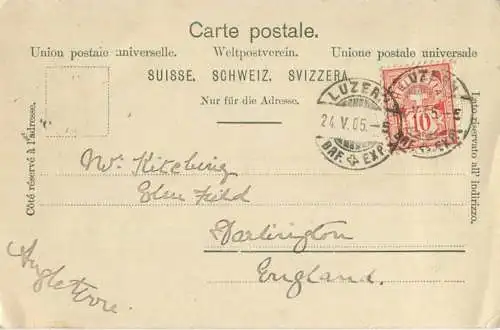 Carte postale.
Union postale universelle. Weltpostverein. Unione postale universale
SUISSE. SCHWEIZ. SVIZZERA.
Nur für die Adresse.
Côté réservé à l'adresse.
Lato riservato all' indirizzo.
LUZERN
24.V.05.-5
BRF. EXP.
LUZERN
10
Mr. Kitching
Elm Field
Darlington
England.
Angleterre.